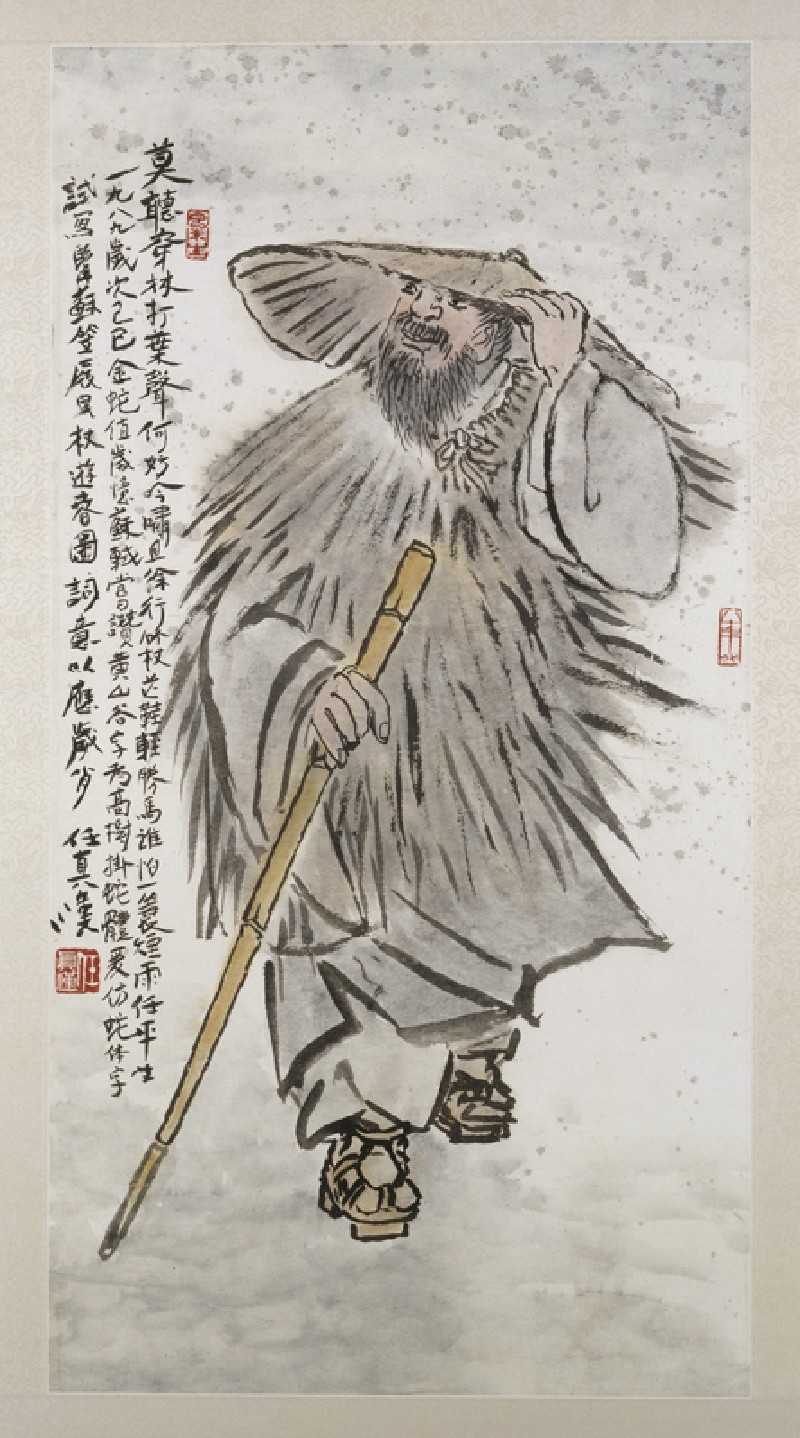 莫聽穿林打葉聲何妨吟嘯且徐行竹杖芒鞋輕勝馬誰怕一蓑煙雨任平生
一九八九歲次己巳金蛇值歲憶蘇軾嘗曰讚黃山谷字為高樹掛蛇體爰仿蛇体字
試寫 蘇笠屐曳杖遊春圖詞意以應歲兮 任真漢